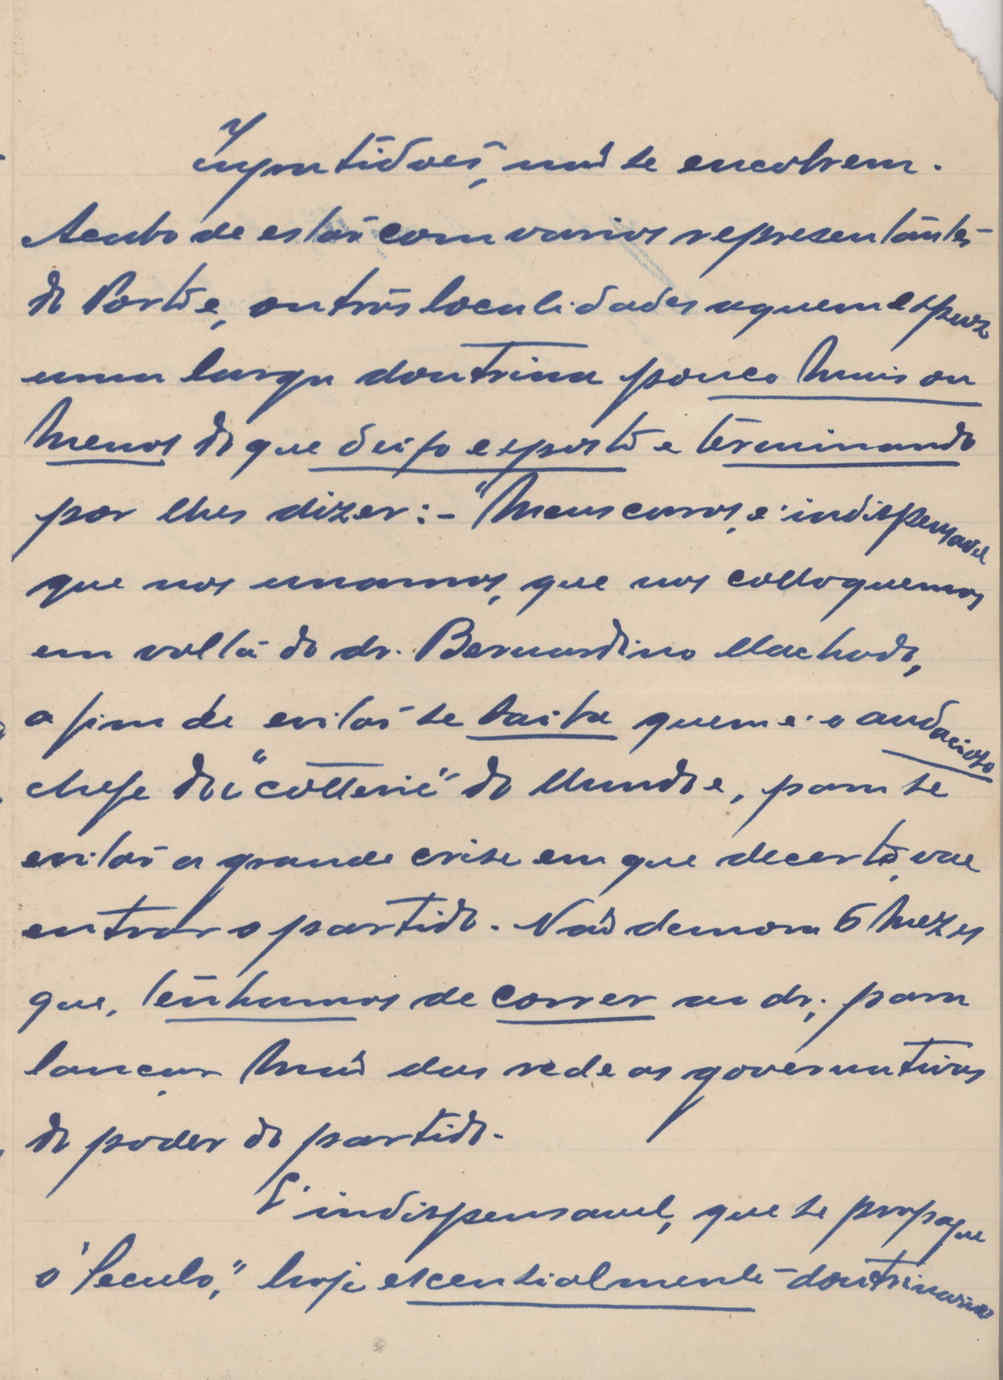 Ingratidões, não se encobrem.
Acabo de estar com varios representantes
do Porto e, outras localidades a quem expuz
uma larga doutrina pouco mais ou
menos do que deixo exposto e terminando
por lhes dizer: - "Meus caros, e' indispensavel
que nos unamos, que nos colloquemos
em volta do dr. Bernardino Machado,
a fim de evitar se saiba quem e' o audacioso
chefe da "cotterie" do Mundo e, para se
evitar a grande crise em que decerto, vae
entrar o partido. Não demora 6 mezes
que, tenhamos de correr ao dr. para
lançar mão das redeas governativas
do poder do partido.
E' indispensavel, que se propague
o "Seculo," hoje escencialmente doutrinario